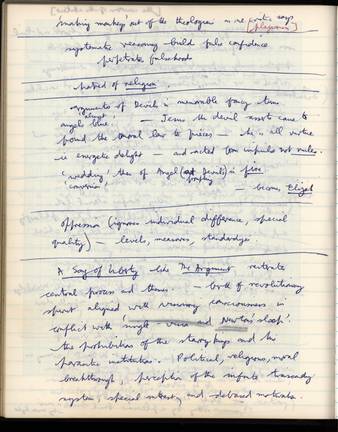 making monkey out of the theologian
[plagiarism]
systematic reasoning build false confidence
perpetrate falsehood
hatred of religion
arguments of Devil in memorable fancy turn
angel blue — Jesus the devil asserts came to
pound the moral law to pieces — he is all virtue
ie energetic delight — and acted from impulse not rules.
'wedding' then of Angel & Devil in fire
'conversion'
— becomes Elijah
oppression (ignores individual difference, special
quality) — levels, measures, standardizes.
A Song of Liberty like The Argument reiterates
central process and theme. — birth of revolutionary
spirit aligned with visionary consciousness in
conflict with single vision and Newton's sleep'.
the prohibitions of the starry kings and the
parasitic institutions. Political, religious, moral
breakthrough, perception of the infinite transcends
system, special interest, and debased motivation.